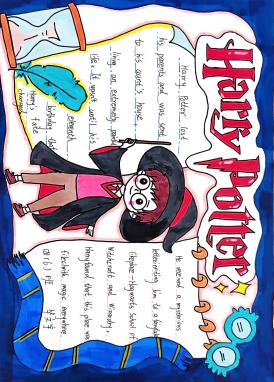 Harry Potter
Harry Potter lost
his parents and was sent
to his aunt's home,
living an extremely painful
life. It wasn't until his
eleventh
birthday that
Harry's fate
changed.
He received a mysterious
letter inviting him to a
place - Hogwarts School of
Witchcraft and Wizardry.
Harry found that this place was
filled with magic everywhere.